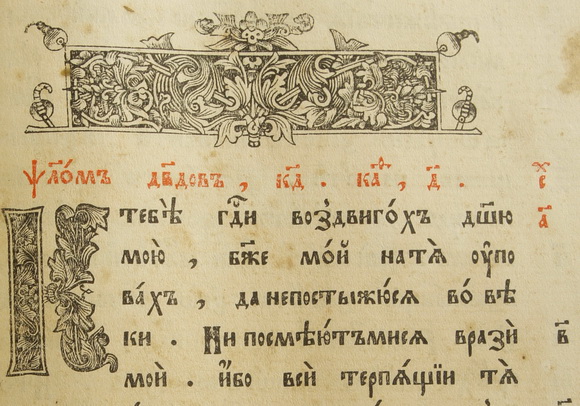 ѱл҇о́мъ дв҃довъ, к҃д. каѳ, д҃.
К тебѣ̀ гдⷭ҇и воздвиго́хъ дш҃ю
мою̀, бж҃е мо́й натѧ̀ ᲂу҆по
ва́хъ, да непостыжю́сѧ во́ вѣ
ки. Ни посмѣю́тъмисѧ врази́
мой. и҆́бо всѝ терпѧ́щїи тѧ̀